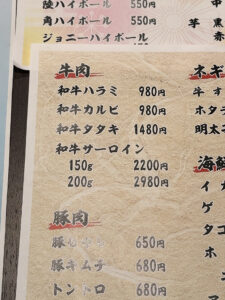 陸ハイボール 550円
角ハイボール 550円
ジョニーハイボール
550円
芋
黒
赤
牛肉
和牛ハラミ 980円
和牛カルビ 980円
和牛タタキ 1480円
和牛サーロイン
150g 2200円
200g 2980円
豚肉
650円
豚キムチ 680円
トントロ 680円
ネギ
牛オ
ホタ
明太
海鮮
イ
ゲ
タコ
ホ